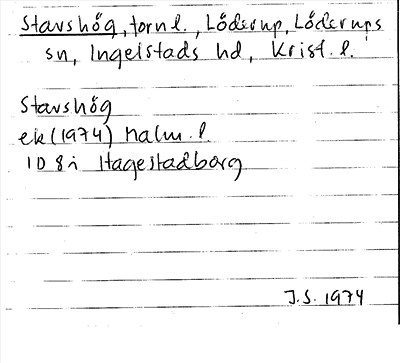 Stavshög, tornl., Löderup, Löderups
sn, Ingelstads hd, Krist. l.
Stavshög
ek (1974) Malm. l.
1D 8i Hagestadborg
J.S. 1974